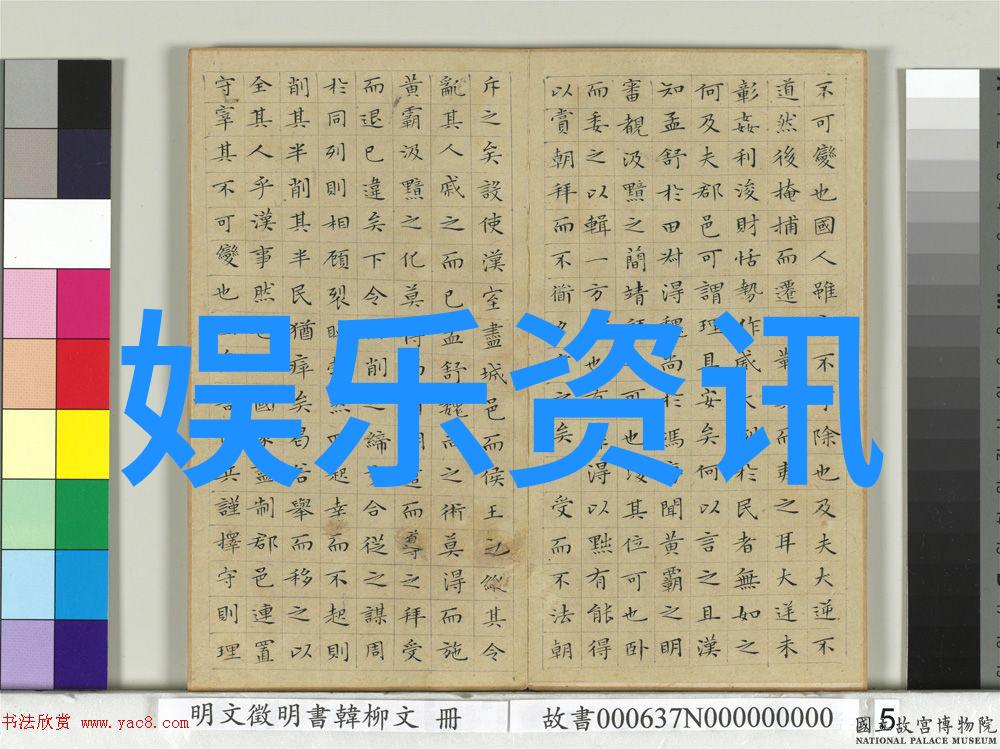 娱乐资讯
不可變也國人雖不除也及夫大逆不
道然後掩捕而遷而夷之耳大逆未
彰姦利浚財怙勢作威大於民者無如之
何及夫郡邑可謂理且安矣何以言之且漢
知孟舒於田叔得魏尚於馮聞黃霸之明
審覩汲黯之簡靖可也其位可也卧
而委之以輯一方也有得以黜有能得
以賞朝拜而不之矣受而不法朝
斥之矣設使漢室盡城邑而侯王之縱其令
亂其人戚之而已孟舒魏尚之術莫得而施
黃霸汲黯之化莫得而導之拜受
而退已違矣下令削之締合從之謀周
於同列則相顧裂起幸而不起則
削其半削其半民猶瘁矣曷若舉而移之以
全其人乎漢事然也國家盡制郡邑連置
守宰其不可變也兵謹擇守則理
明文徵明書韓柳文 冊
故書000637N000000000
5
國立故宮博物院
NATIONAL PALACE MUSEUM
书法欣赏 www.yac8.com